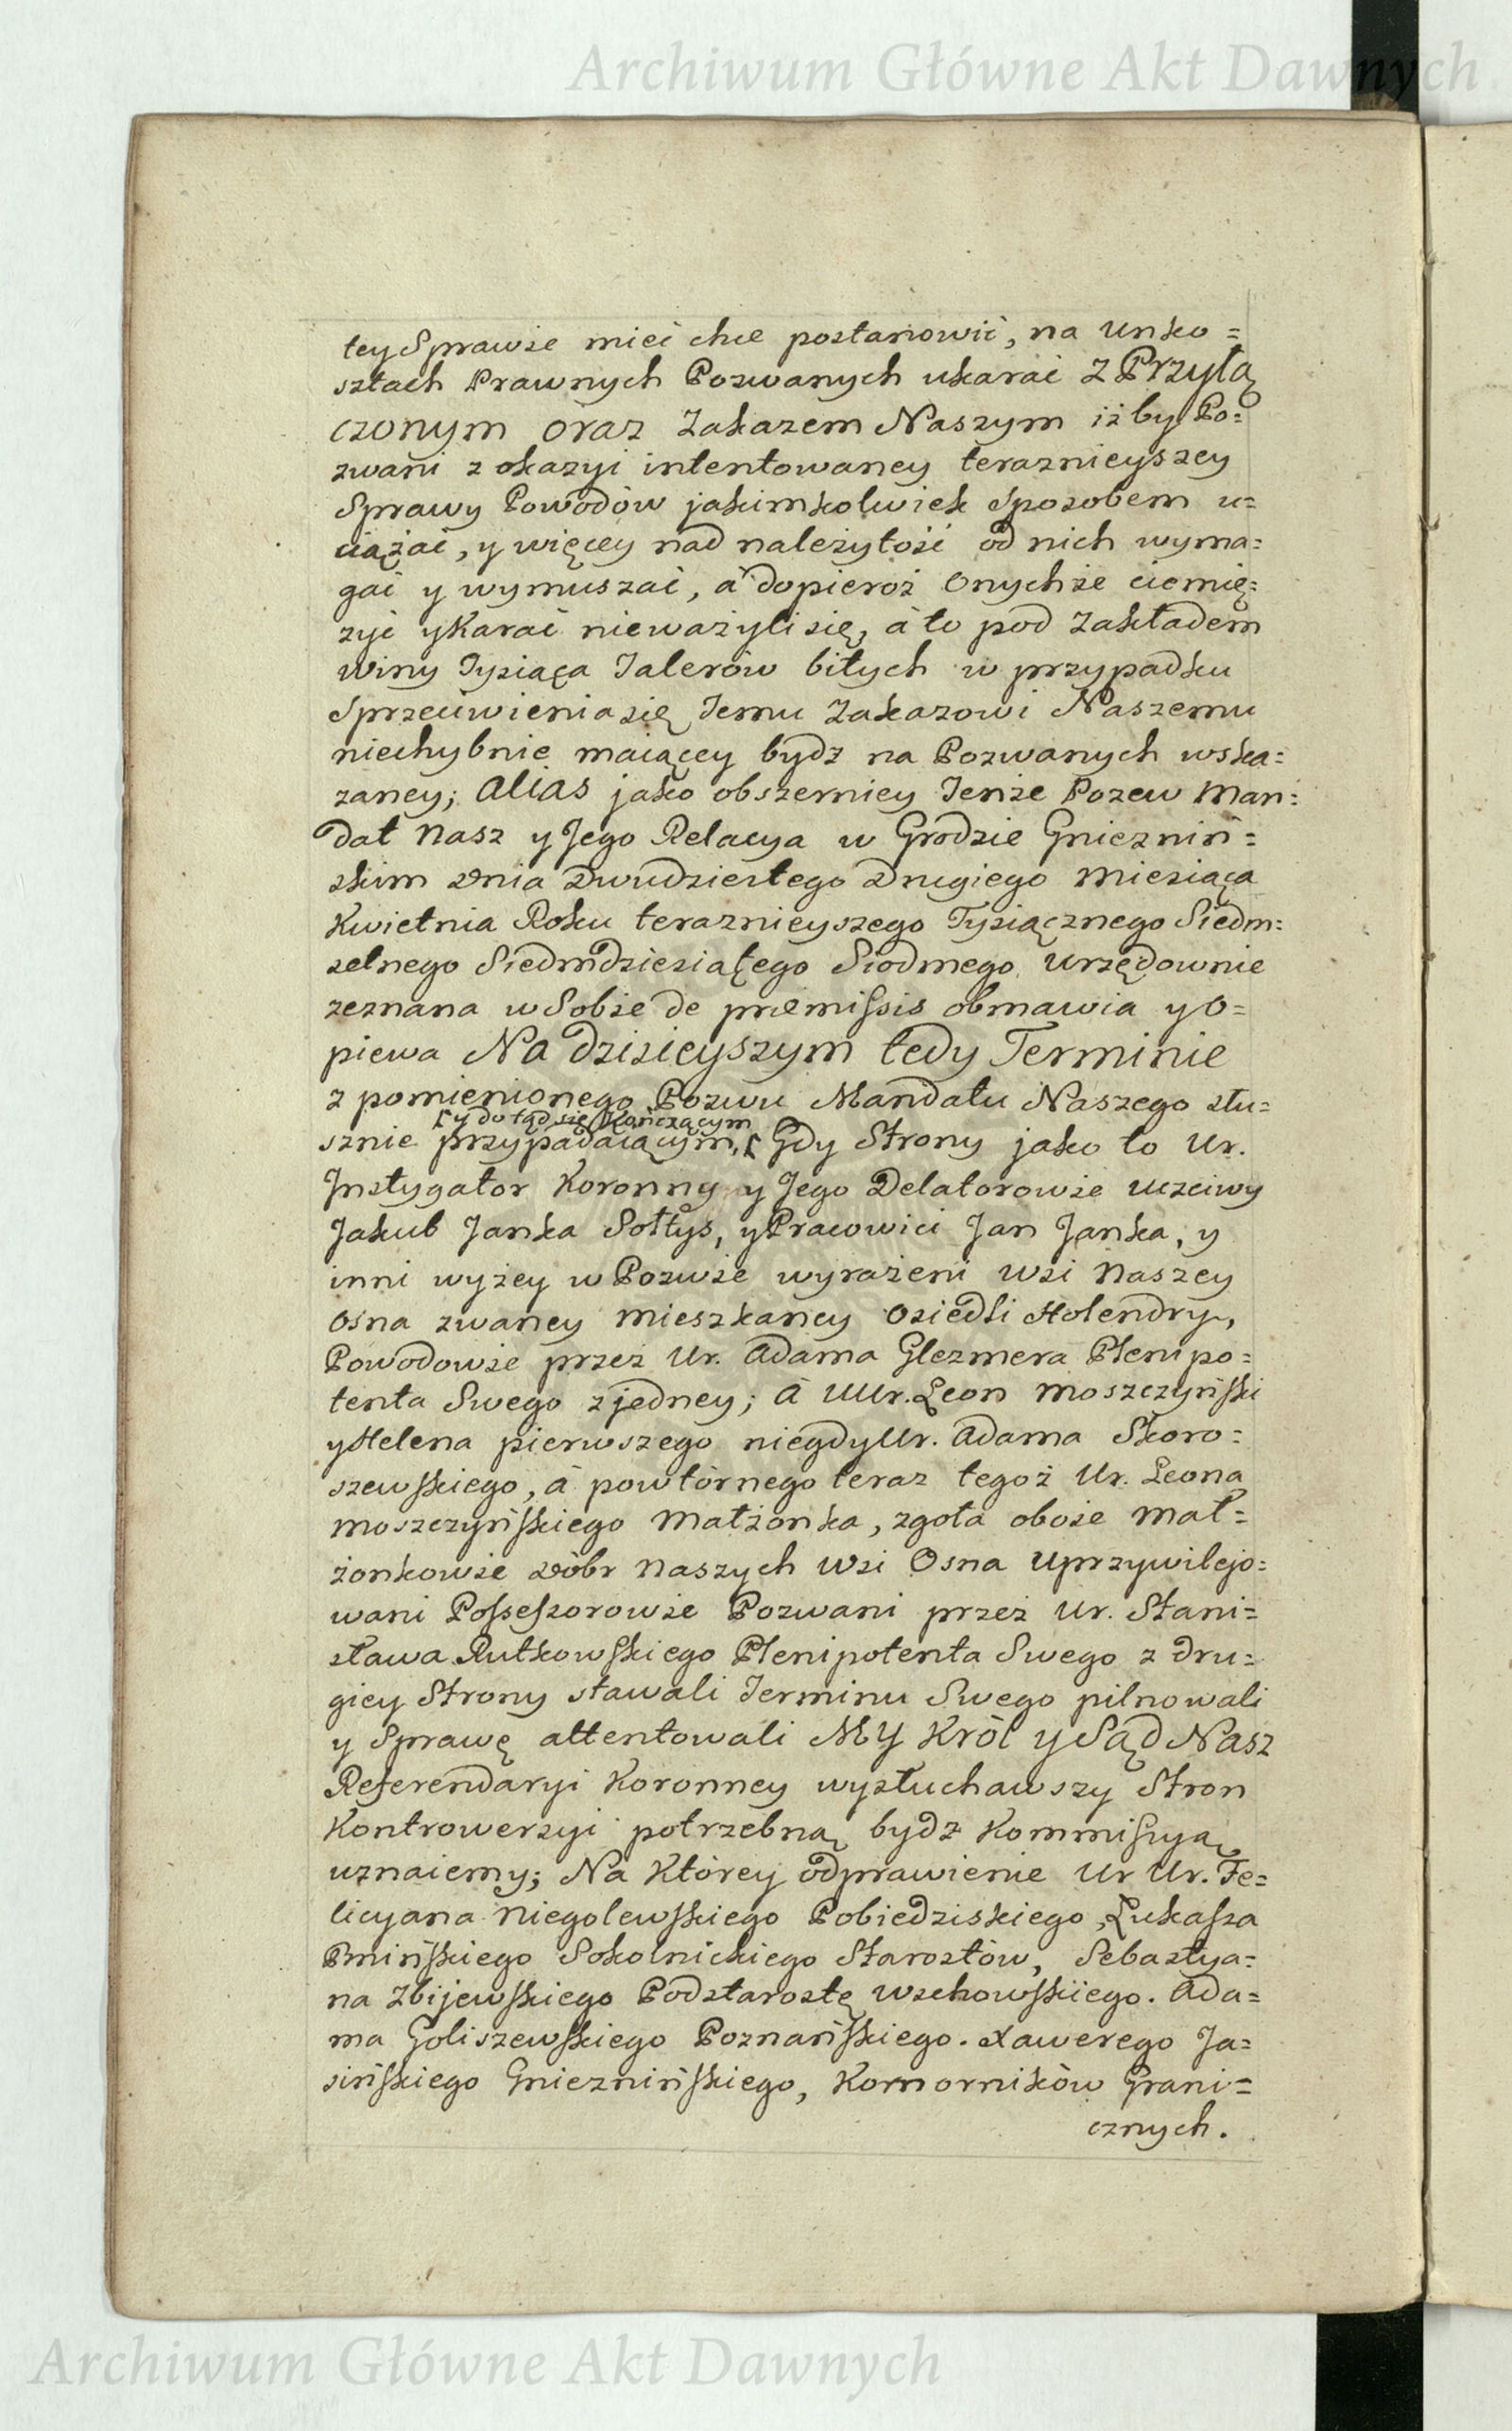 Archiwum Główne Akt Dawnych
tey Sprawie mieć chce postanowić, na unko=
sztach Prawnych Pozwanych ukarać z Przyłą
czonym oraz Zakazem Naszym iżby Po=
zwani z okazyi intentowaney teraznieyszey
Sprawy Powodów jakimkolwiek sposobem u=
ciążać, y więcey nad należytość od nich wyma=
gać y wymuszać, á dopieroż Onychże ciemię=
żyć y Karać nieważyli się, á to pod Zakładem
winy Tysiąca Talerów bitych w przypadku
Sprzeciwienia się Temu Zakazowi Naszemu
niechybnie maiącey bydz na Pozwanych wska=
zaney; alias jako obszerniey Tenże Pozew Man=
dat Nasz y Jego Relacya w Grodzie Gniezniń=
skim Dnia Dwudziestego Drugiego Miesiąca
Kwietnia Roku teraznieyszego Tysiącznego Siedm=
setnego Siedmdziesiątego Siodmego Urzędownie
zeznana w Sobie de præmissis obmawia y o=
piewa Na dzisieyszym tedy Terminie
z pomienionego Pozwu Mandatu Naszego słu=
y dotąd się Kończącym
sznie przypadaiącym, Gdy Strony jako to Ur.
Instygator Koronny y Jego Delatorowie Uczciwy
Jakub Janka Sołtys, y Pracowici Jan Janka, y
inni wyżey w Pozwie wyrażeni Wsi Naszey
Osna zwaney Mieszkancy Osiedli Holendry,
Powodowie przez Ur. Adama Glezmera Plenipo=
tenta Swego z jedney; á UUr. Leon Moszczyński
y Helena pierwszego niegdy Ur. Adama Skoro=
szewskiego, á powtórnego teraz tegoż Ur. Leona
Moszczyńskiego Małżonka, zgoła oboie Mał=
żonkowie Dóbr Naszych Wsi Osna Uprzywilejo=
wani Possessorowie Pozwani przez Ur. Stani=
sława Rutkowskiego Plenipotenta Swego z dru=
giey Strony stawali Terminu Swego pilnowali
y Sprawę attentowali My Król y Sąd Nasz
Referendaryi Koronney wysłuchawszy Stron
Kontrowersyi potrzebną bydz Kommissyą
uznaiemy; Na Którey odprawienie Ur Ur. Fe=
licyana Niegolewskiego Pobiedziskiego, Łukasza
Bnińskiego Sokolnickiego Starostów, Sebastya=
na Zbijewskiego Podstarostę Wschowskiego. Ada=
ma Goliszewskiego Poznańskiego. Xawerego Ja=
sińskiego Gnieznińskiego, Komorników Grani=
cznych.
Archiwum Główne Akt Dawnych